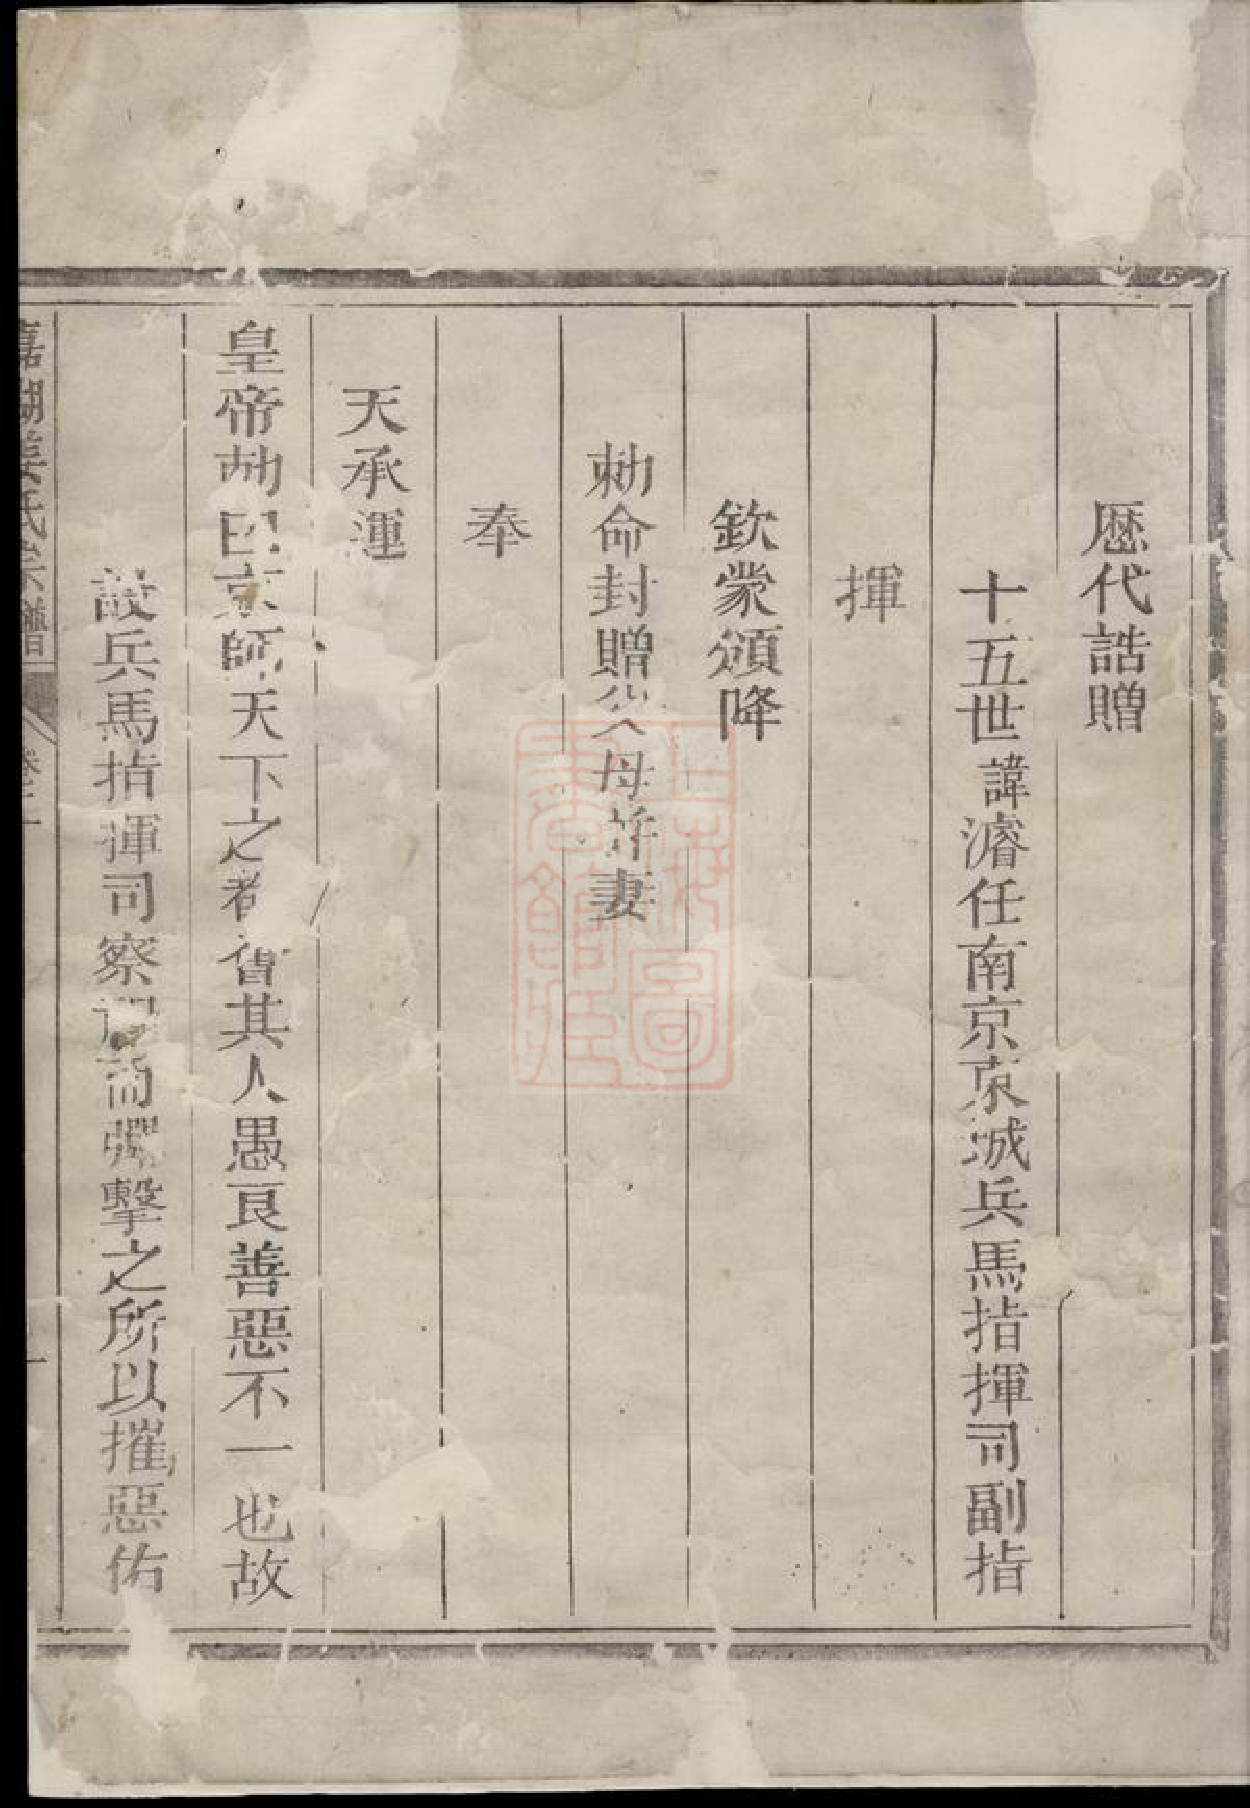 歷代誥贈
十五世諱濬任南京京城兵馬指揮司副指
揮
欽蒙頒降
勅命封贈父母并妻
奉
天承運
皇帝勅曰京師天下之都會其人愚良善惡不一也故
設兵馬指揮司察理而彈擊之所以摧惡佑
嘉湖姜氏宗譜
卷之一
上海圖書館藏